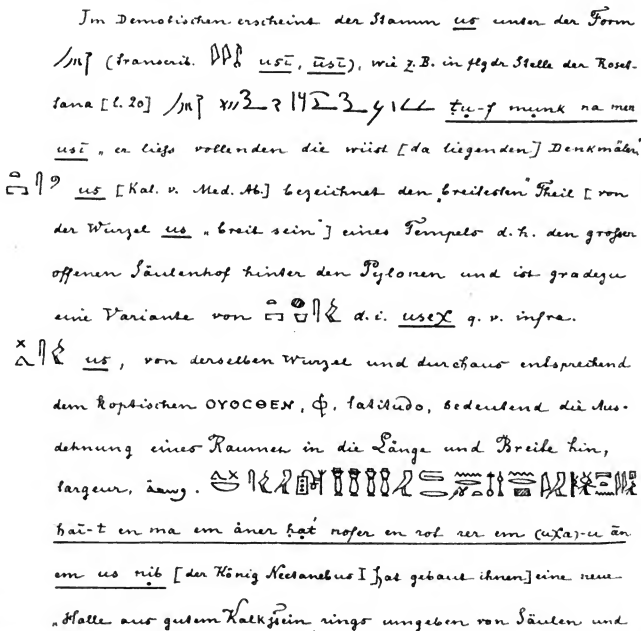 Im Demotischen erscheint der Stamm us unter der Form
(transcrib. usī, ūsī), wie z.B. in flgdr Stelle der Roset-
tana [l. 20] ṭu-f munk na men
usī „er liefs vollenden die wüst [da liegenden] Denkmäler"
us [Kal. v. Med. Ab.] bezeichnet den „breitesten" Theil [von
der Wurzel us „breit sein"] eines Tempels d.h. den grofsen
offenen Säulenhof hinter den Pylonen und ist gradezu
eine Variante von d.i. useχ q. v. infra.
us, von derselben Wurzel und durchaus entsprechend
dem koptischen ΟΥΟCΘΕΝ, ϕ, latitudo, bedeutend die Aus-
dehnung eines Raumes in die Länge und Breite hin,
largeur,
haī-t en ma em āner haṭ nofer en rer em (uχa)-u ān
em us nib [der König Nectanebus I hat gebaut ihnen] eine neue
„Halle aus gutem Kalkstein rings umgeben von Säulen und